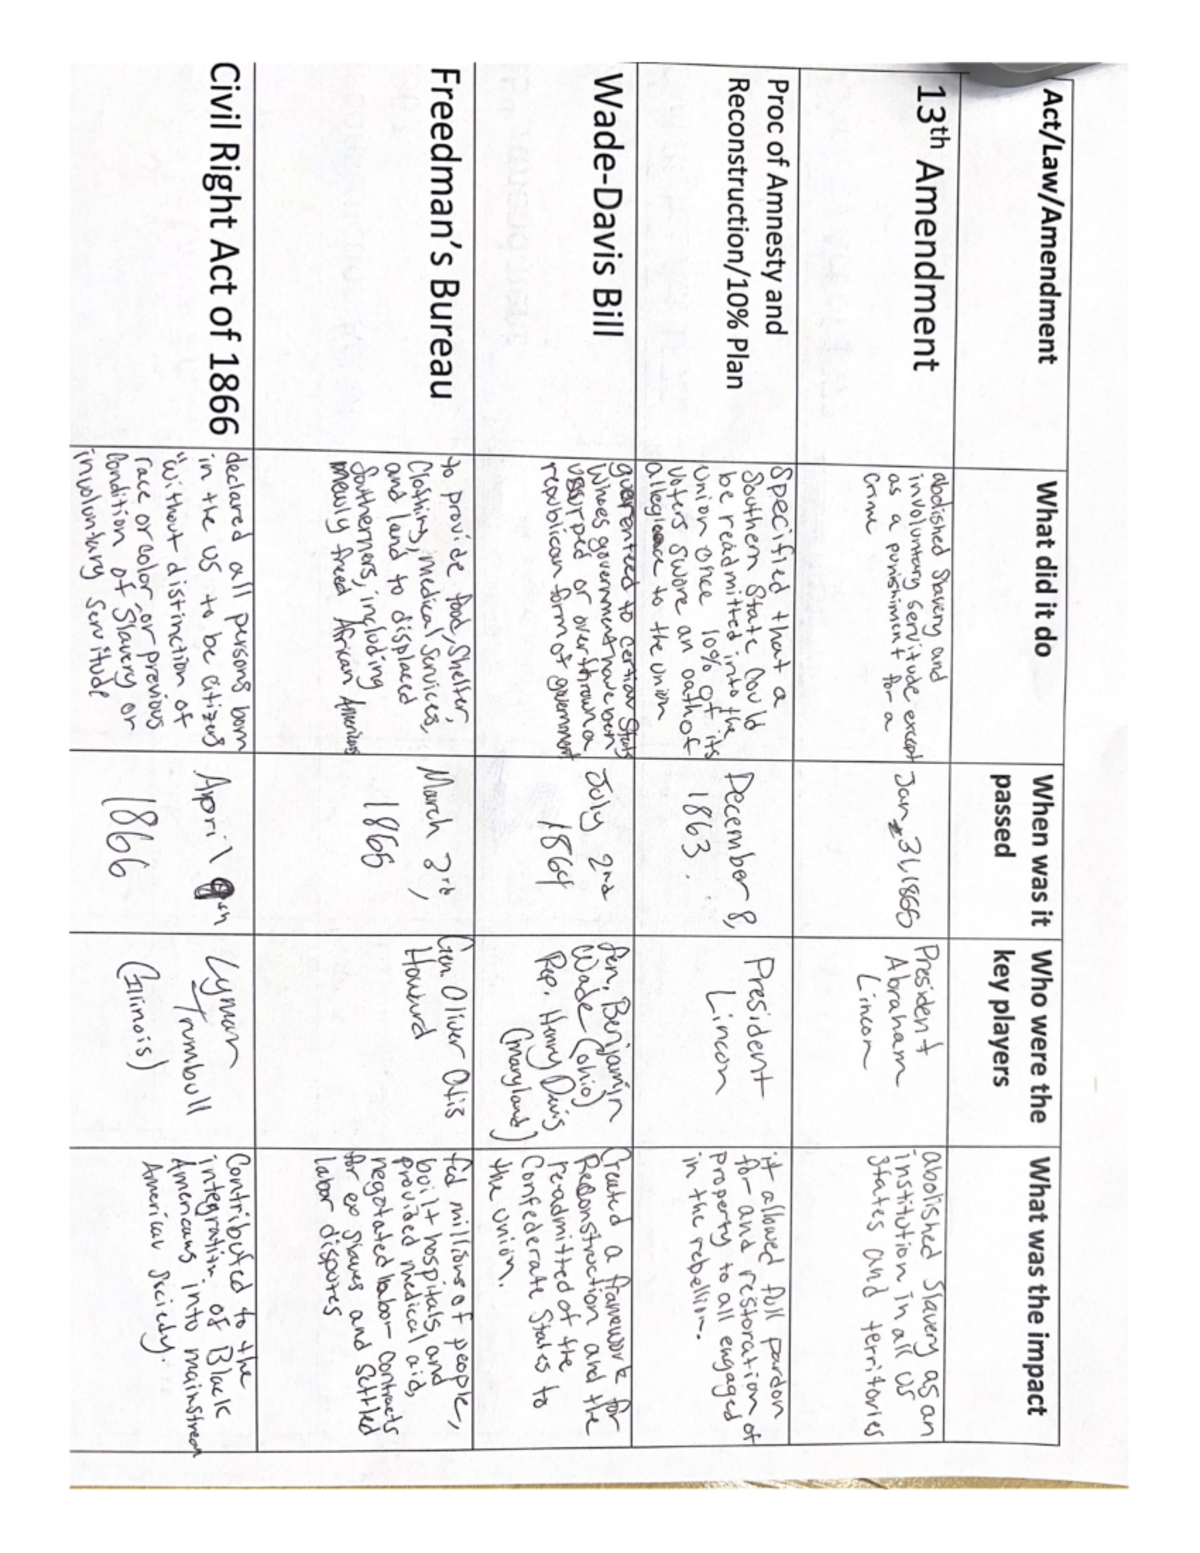 Act/Law/Amendment
What did it do
When was it
passed
Who were the
key players
What was the impact
13th Amendment
abolished Slavery and
involuntary servitude except
as a punishment for a
crime
Jan 31, 1865
President
Abraham
Lincon
abolished Slavery as an
institution in all US
States and territories
Proc of Amnesty and
Reconstruction/10% Plan
Specified that a
Southern State could
be readmitted into the
union once 10% of its
voters swore an oath of
allegience to the union
December 8,
1863.
President
Lincon
it allowed full pardon
for and restoration of
property to all engaged
in the rebellion.
Wade-Davis Bill
guarenteed to certian States
whoes government have been
usurped or overthrown a
republican form of government
July 2nd
1864
Sen. Benjamin
Wade (ohio)
Rep. Henry Davis
(maryland)
Created a framework for
Reconstruction and the
readmitted of the
Confederate States to
the union.
Freedman's Bureau
to provide food, Shelter,
Clothing, medical Services,
and land to displaced
Southerners, including
newly freed African Americans
March 3rd,
1865
Gen. Oliver Otis
Howard
fed millions of people,
built hospitals and
provided medical aid,
negotated labor contracts
for ex Slaves and Settled
labor disputes
Civil Right Act of 1866
declared all persons born
in the US to be citizens
"without distinction of
race or color, or previous
Condition of Slavery or
involuntary servitude
April
1866
Lyman
Trumbull
(Illinois)
Contributed to the
integration of Black
Americans into mainstream
American Society.